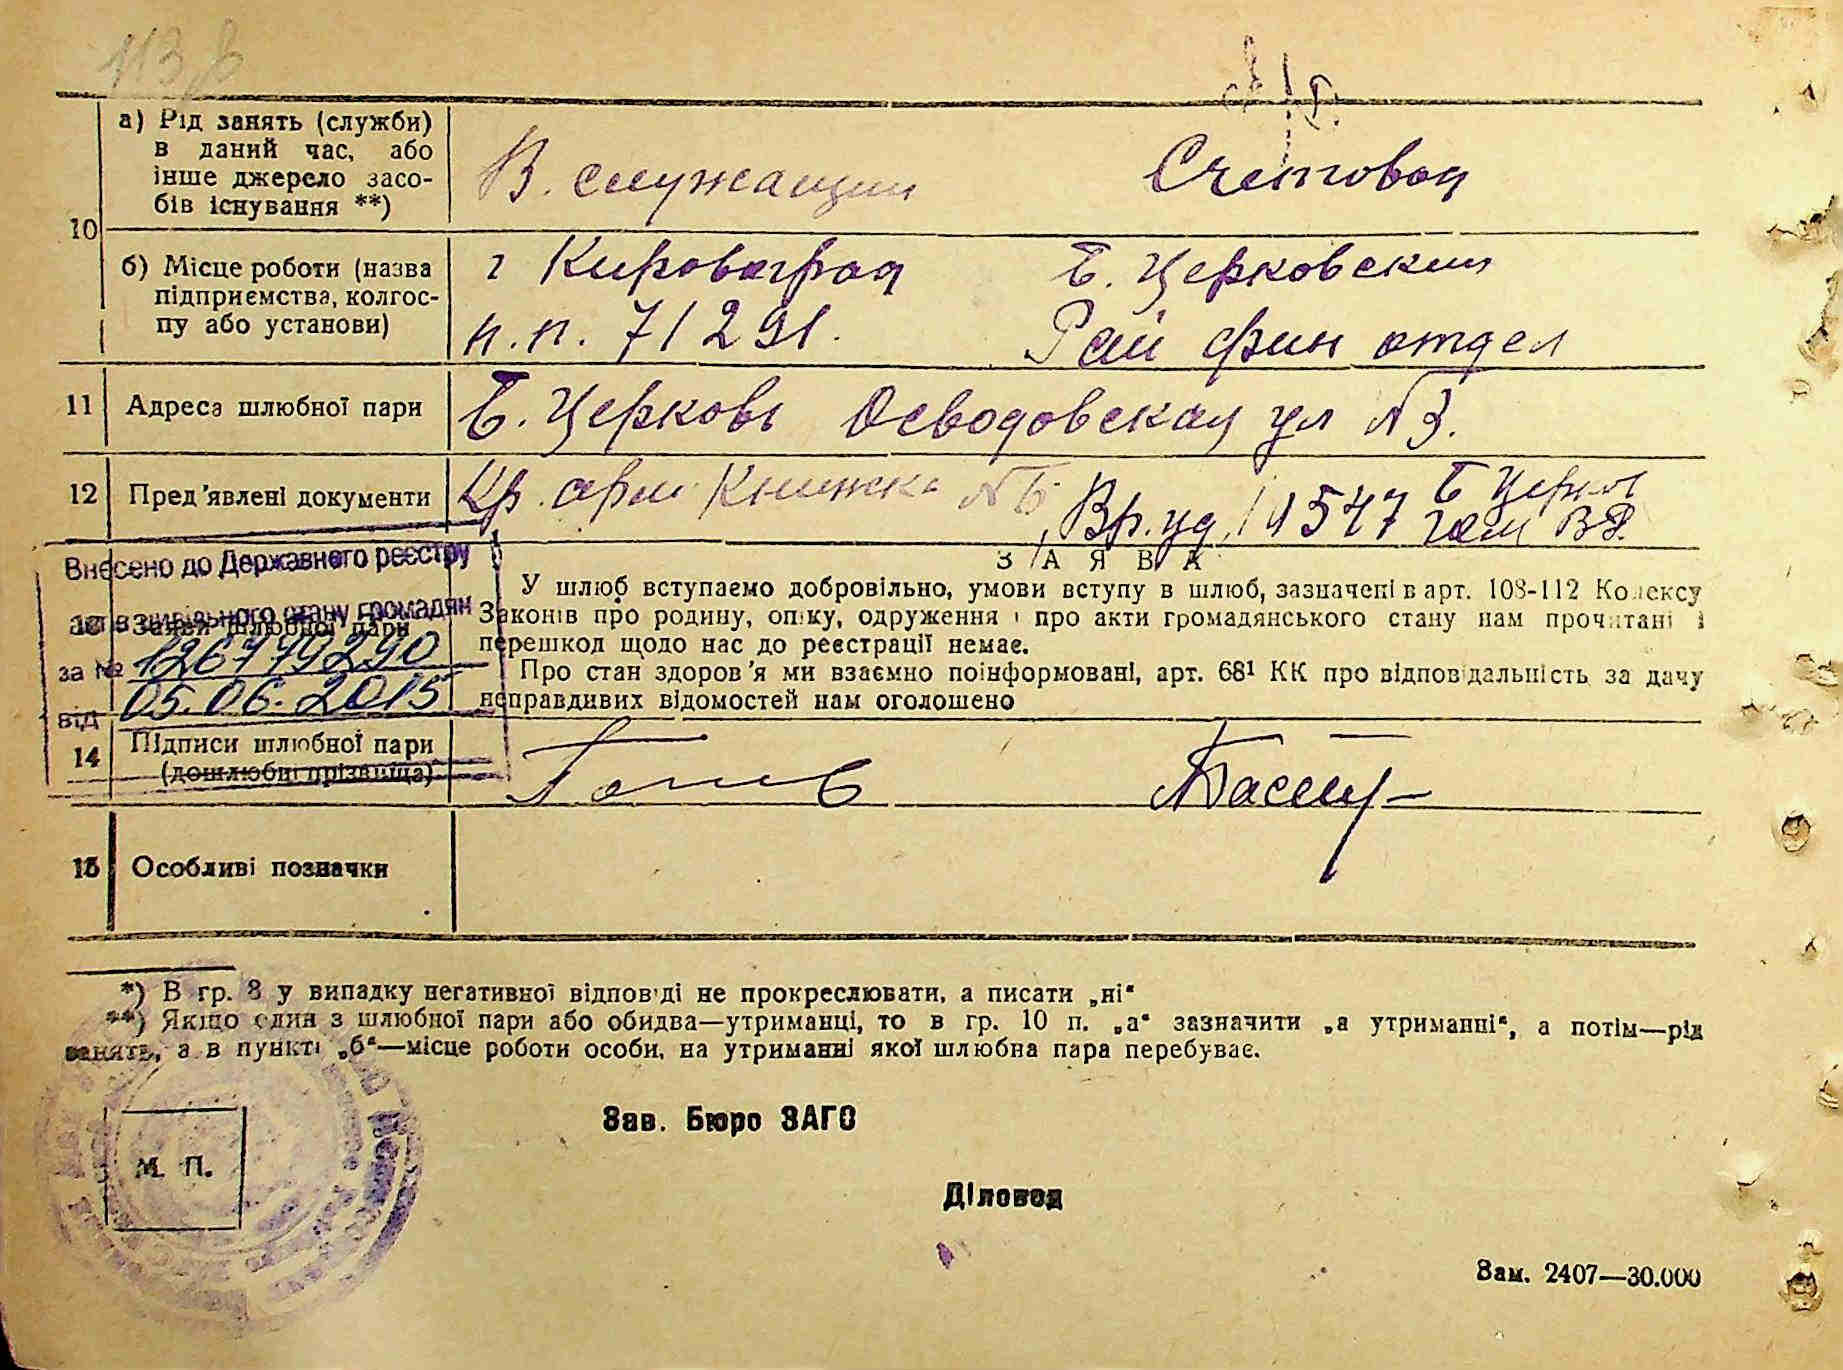 113
а) Рід занять (служби) в даний час, або інше джерело засобів існування **)
В. служащий
Счетовод
10
б) Місце роботи (назва підприємства, колгоспу або установи)
г Кировоград
Б. Церковский
п.п. 71291.
Рай фин отдел
11 Адреса шлюбної пари
Б. Церковь ул №3.
12 Пред'явлені документи
Кр. арм. Книжка №
Вр. уд. 1547
Внесено до Державного реєстру
актів цивільного стану громадян
за № 126779290
від 05.06.2015
13 Заява шлюбної пари
ЗАЯВА
У шлюб вступаємо добровільно, умови вступу в шлюб, зазначені в арт. 108-112 Кодексу
Законів про родину, опіку, одруження і про акти громадянського стану нам прочитані і
перешкод щодо нас до реєстрації немає.
Про стан здоров'я ми взаємно поінформовані, арт. 68¹ КК про відповідальність за дачу
неправдивих відомостей нам оголошено
14 Підписи шлюбної пари
(дошлюбні прізвища)
15 Особливі позначки
*) В гр. 8 у випадку негативної відповіді не прокреслювати, а писати „ні“
**) Якщо один з шлюбної пари або обидва—утриманці, то в гр. 10 п. „а“ зазначити „а утриманні“, а потім—рід
занять, а в пункті „б“—місце роботи особи, на утриманні якої шлюбна пара перебуває.
Зав. Бюро ЗАГС
М. П.
Діловод
Зам. 2407—30.000